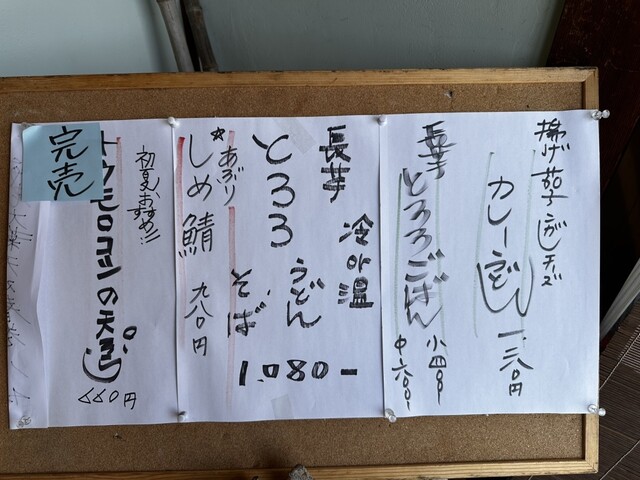 揚げ茄子こがしチーズ
カレーうどん
一、三八〇円
長芋
とろろごはん
小四〇〇-
中六〇〇-
長芋
冷or温
とろろ
うどん
そば
1.080-
☆あぶり
しめ鯖
九八〇円
初夏おすすめ!!
トウモロコシの天ぷら
660円
完売